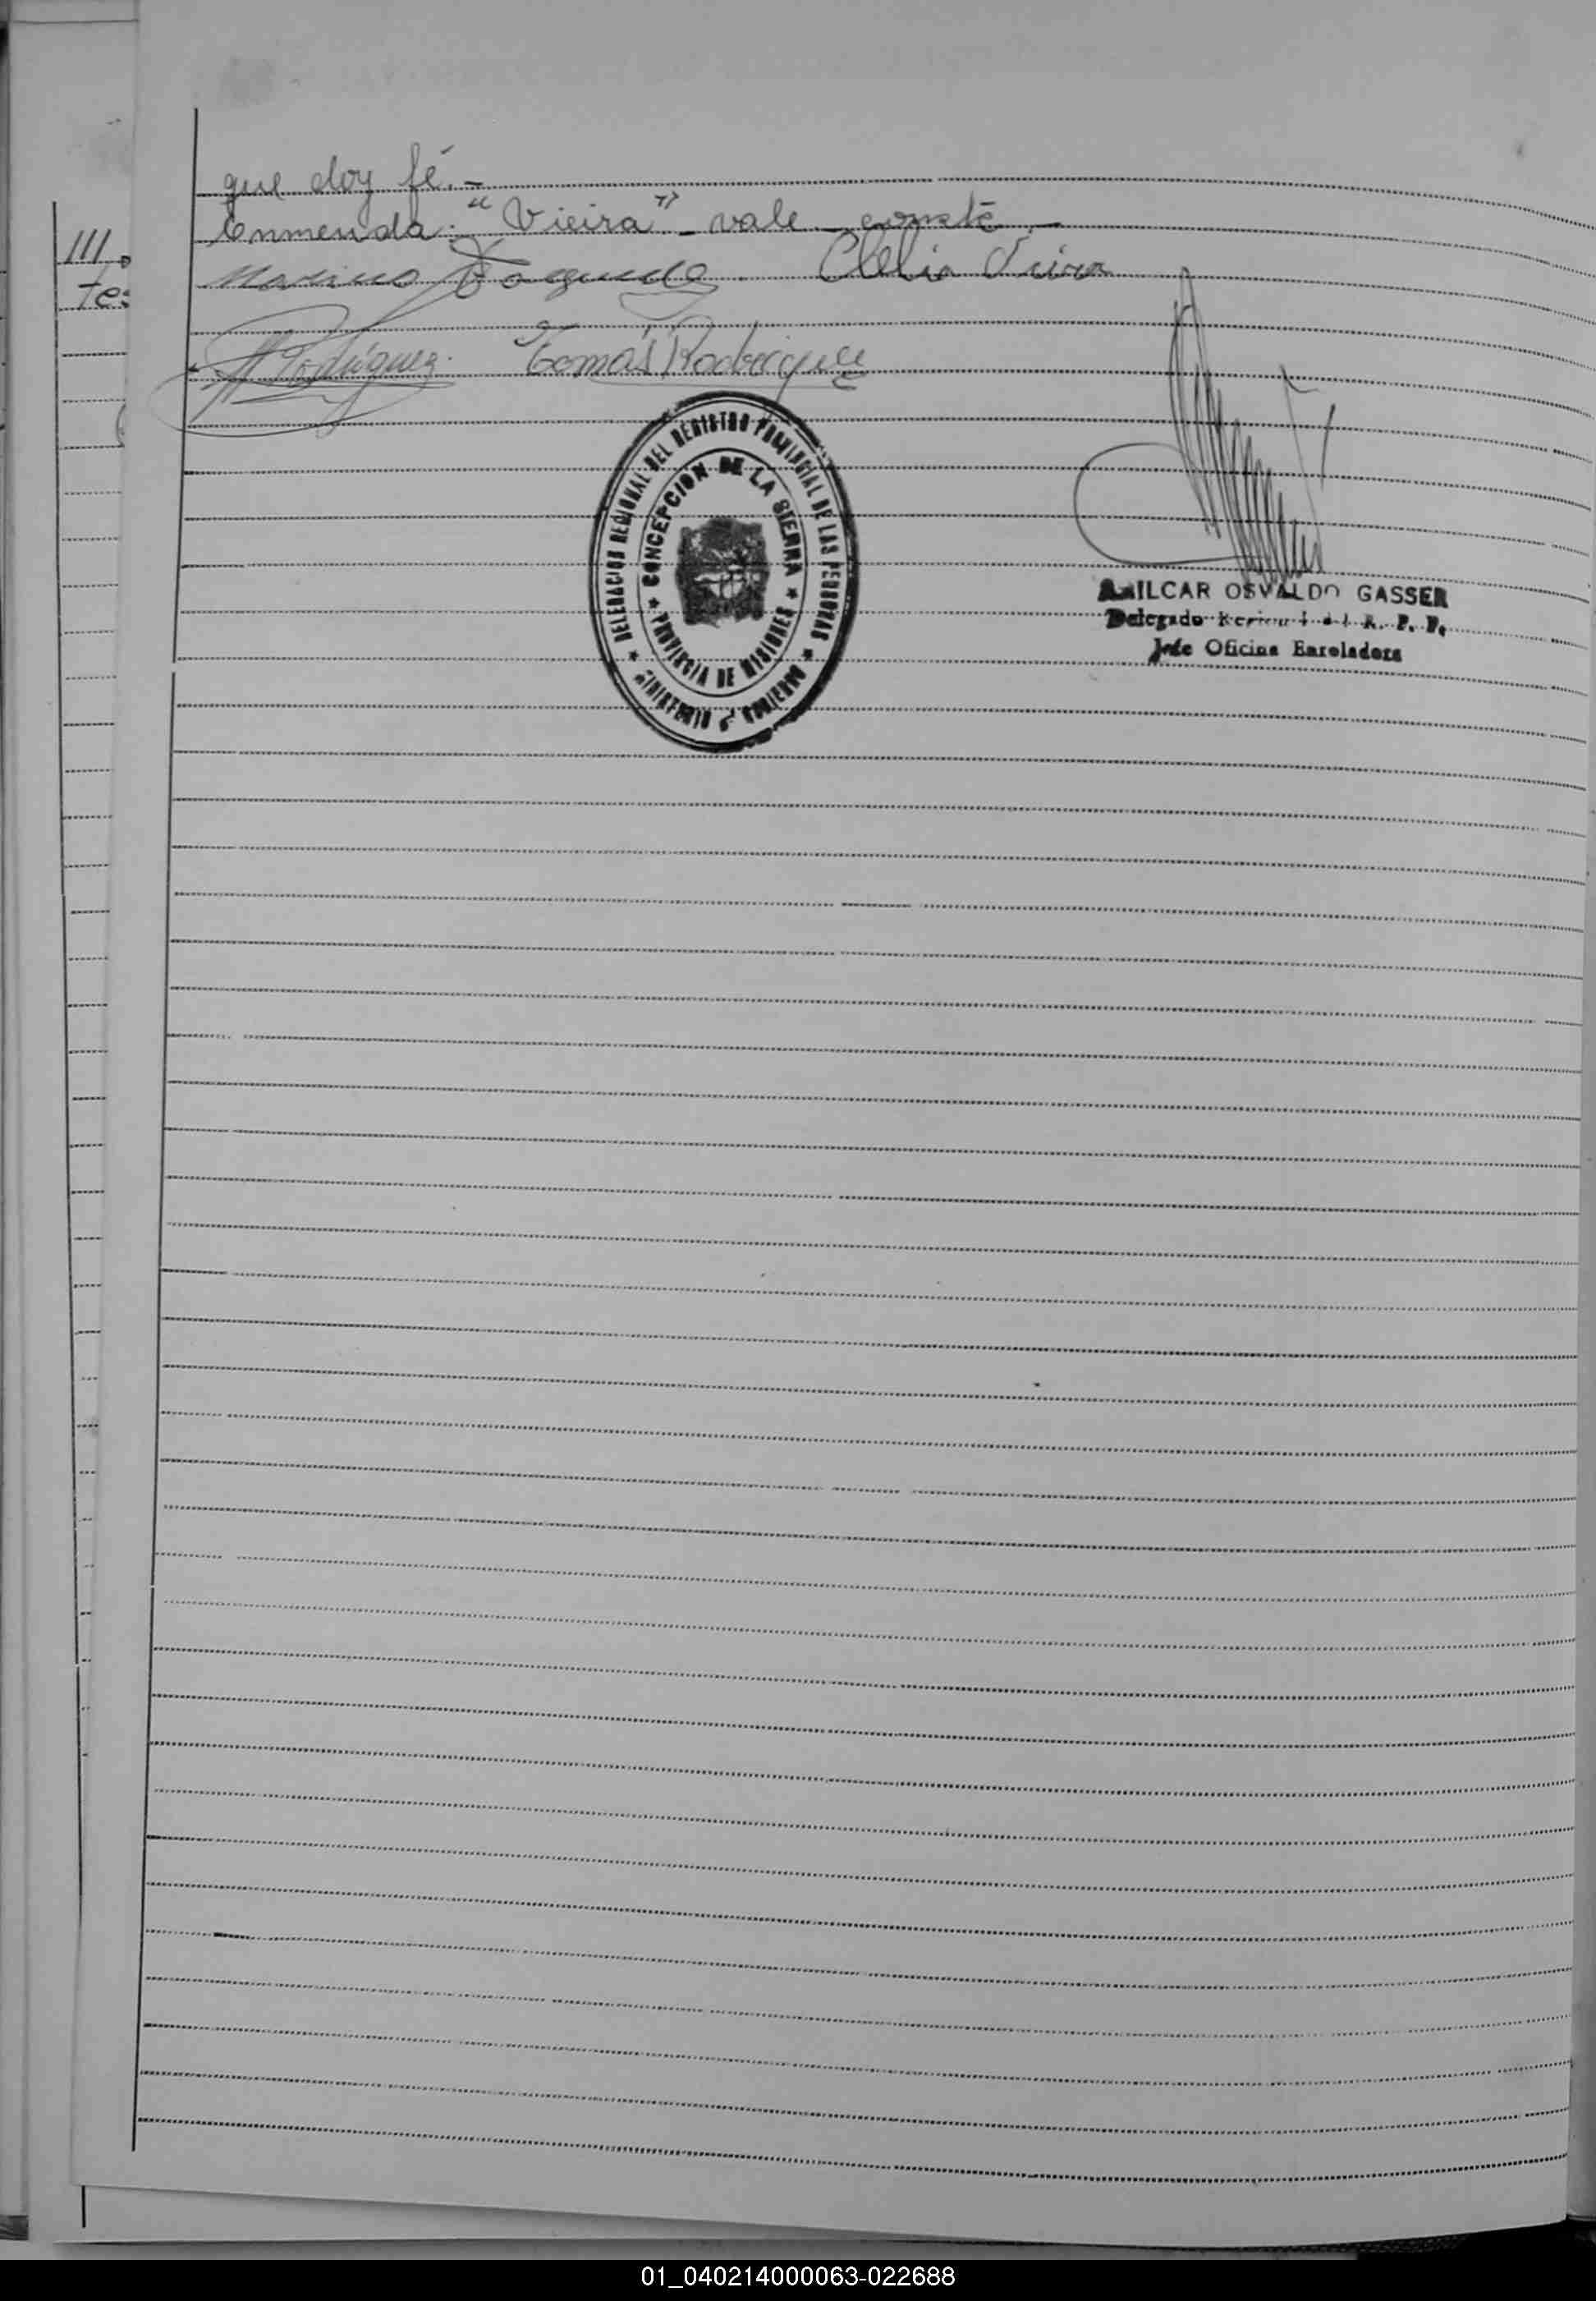 que doy fé.-
Enmenda: "Vieira" - vale - conste.-
Marino Fagundez. Clelia Vieira
Rodriguez. Tomás Rodriguez
DELEGACION REGIONAL DEL REGISTRO PROVINCIAL DE LAS PERSONAS
★ MINISTERIO DE GOBIERNO ★
★ CONCEPCION DE LA SIERRA ★
PROVINCIA DE MISIONES
AMILCAR OSVALDO GASSER
Delegado Regional del R. P. P.
Jefe Oficina Enroladora
///
tes
01_040214000063-022688